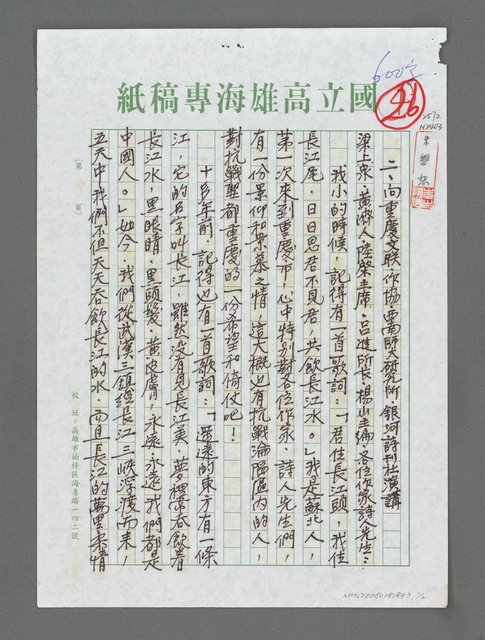 600字
國立高雄海專稿紙
46
25/2
N2403
二、向重慶文联、作協、西南師大研究所、銀河詩刊社演講
梁上泉、黃淮人、陸棨主席、呂進所長、楊山主編、各位作家詩人先生：
我小的時候，記得有一首歌詞：「君住長江頭，我住
長江尾，日日思君不見君，共飲長江水。」我是蘇北人，
第一次來到重慶市，心中特別對各位作家、詩人先生們，
有一份景仰和景慕之情，這大概也有抗戰淪陷區內的人，
對抗戰聖都重慶的一份希望和倚仗吧！
十多年前，記得也有一首歌詞：「遙遠的東方有一條
江，它的名字叫長江，雖然沒有見長江美，夢裡常吞飲着
長江水，黑眼睛，黑頭髮，黃皮膚，永遠，永遠，我們都是
中國人。」如今，我們從武漢三鎮經長江三峽深渡而來，
五天中，我們不但天天吞飲長江的水，而且長江的萬里柔情
（第　頁）
校址：高雄市楠梓區海專路一四二號
NMTL20080181843, 1/2